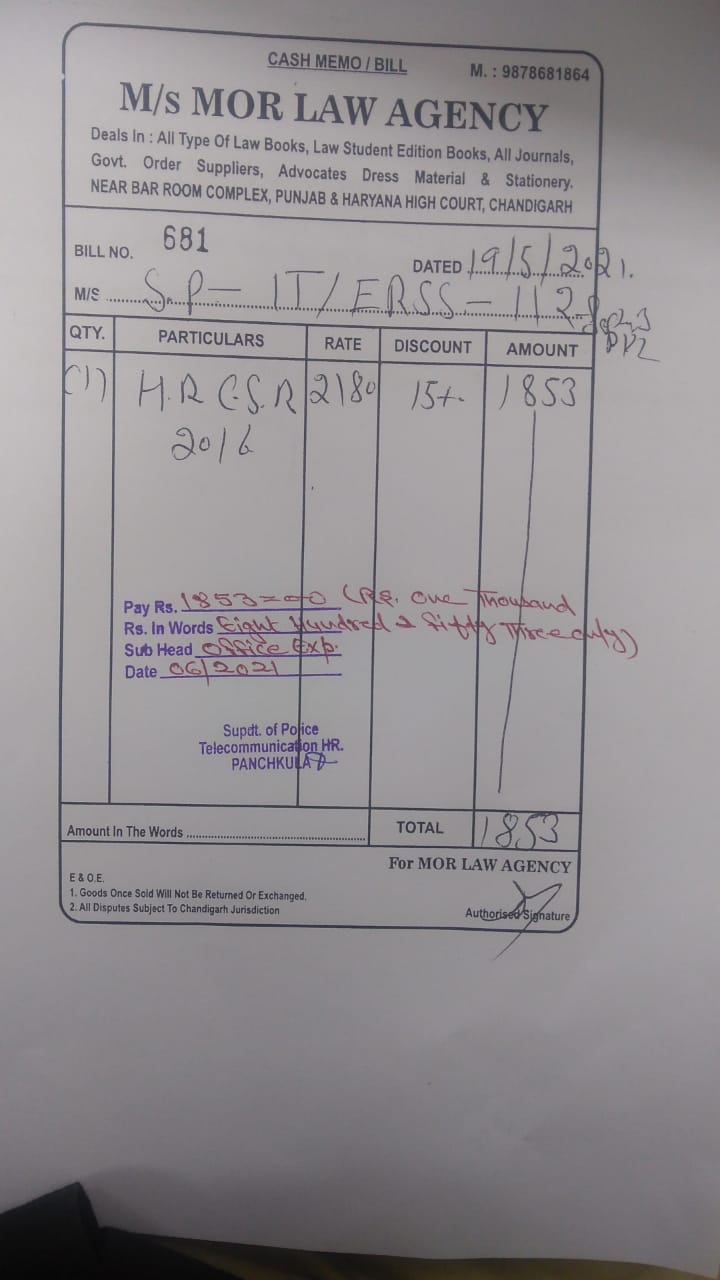 CASH MEMO / BILL
M. : 9878681864
M/s MOR LAW AGENCY
Deals In : All Type Of Law Books, Law Student Edition Books, All Journals,
Govt. Order Suppliers, Advocates Dress Material & Stationery.
NEAR BAR ROOM COMPLEX, PUNJAB & HARYANA HIGH COURT, CHANDIGARH
BILL NO. 681
DATED 19/5/2021.
M/S SP- IT/ERSS-112
QTY. PARTICULARS RATE DISCOUNT AMOUNT
(1) H.R C.S.R 2180 15%. 1853
2016
Pay Rs. 1853=00 (Rs. One Thousand
Rs. In Words Eight Hundred & Fifty Three only)
Sub Head Office Exp.
Date 06/2021
Supdt. of Police
Telecommunication HR.
PANCHKULA
Amount In The Words
TOTAL 1853
For MOR LAW AGENCY
E & O.E.
1. Goods Once Sold Will Not Be Returned Or Exchanged.
2. All Disputes Subject To Chandigarh Jurisdiction
Authorised Signature